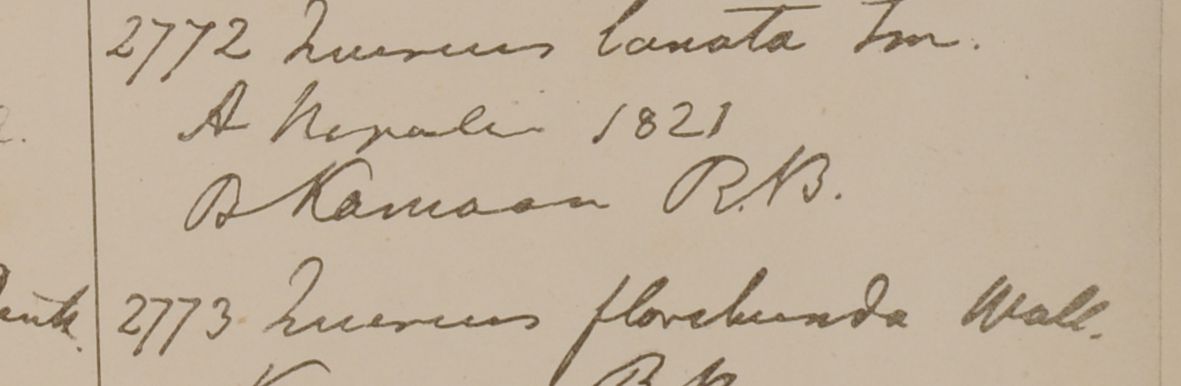 2772 Quercus lanata Sm.
A Nepalia 1821
B Kamaon R.B.
2773 Quercus floribunda Wall.
R.B.